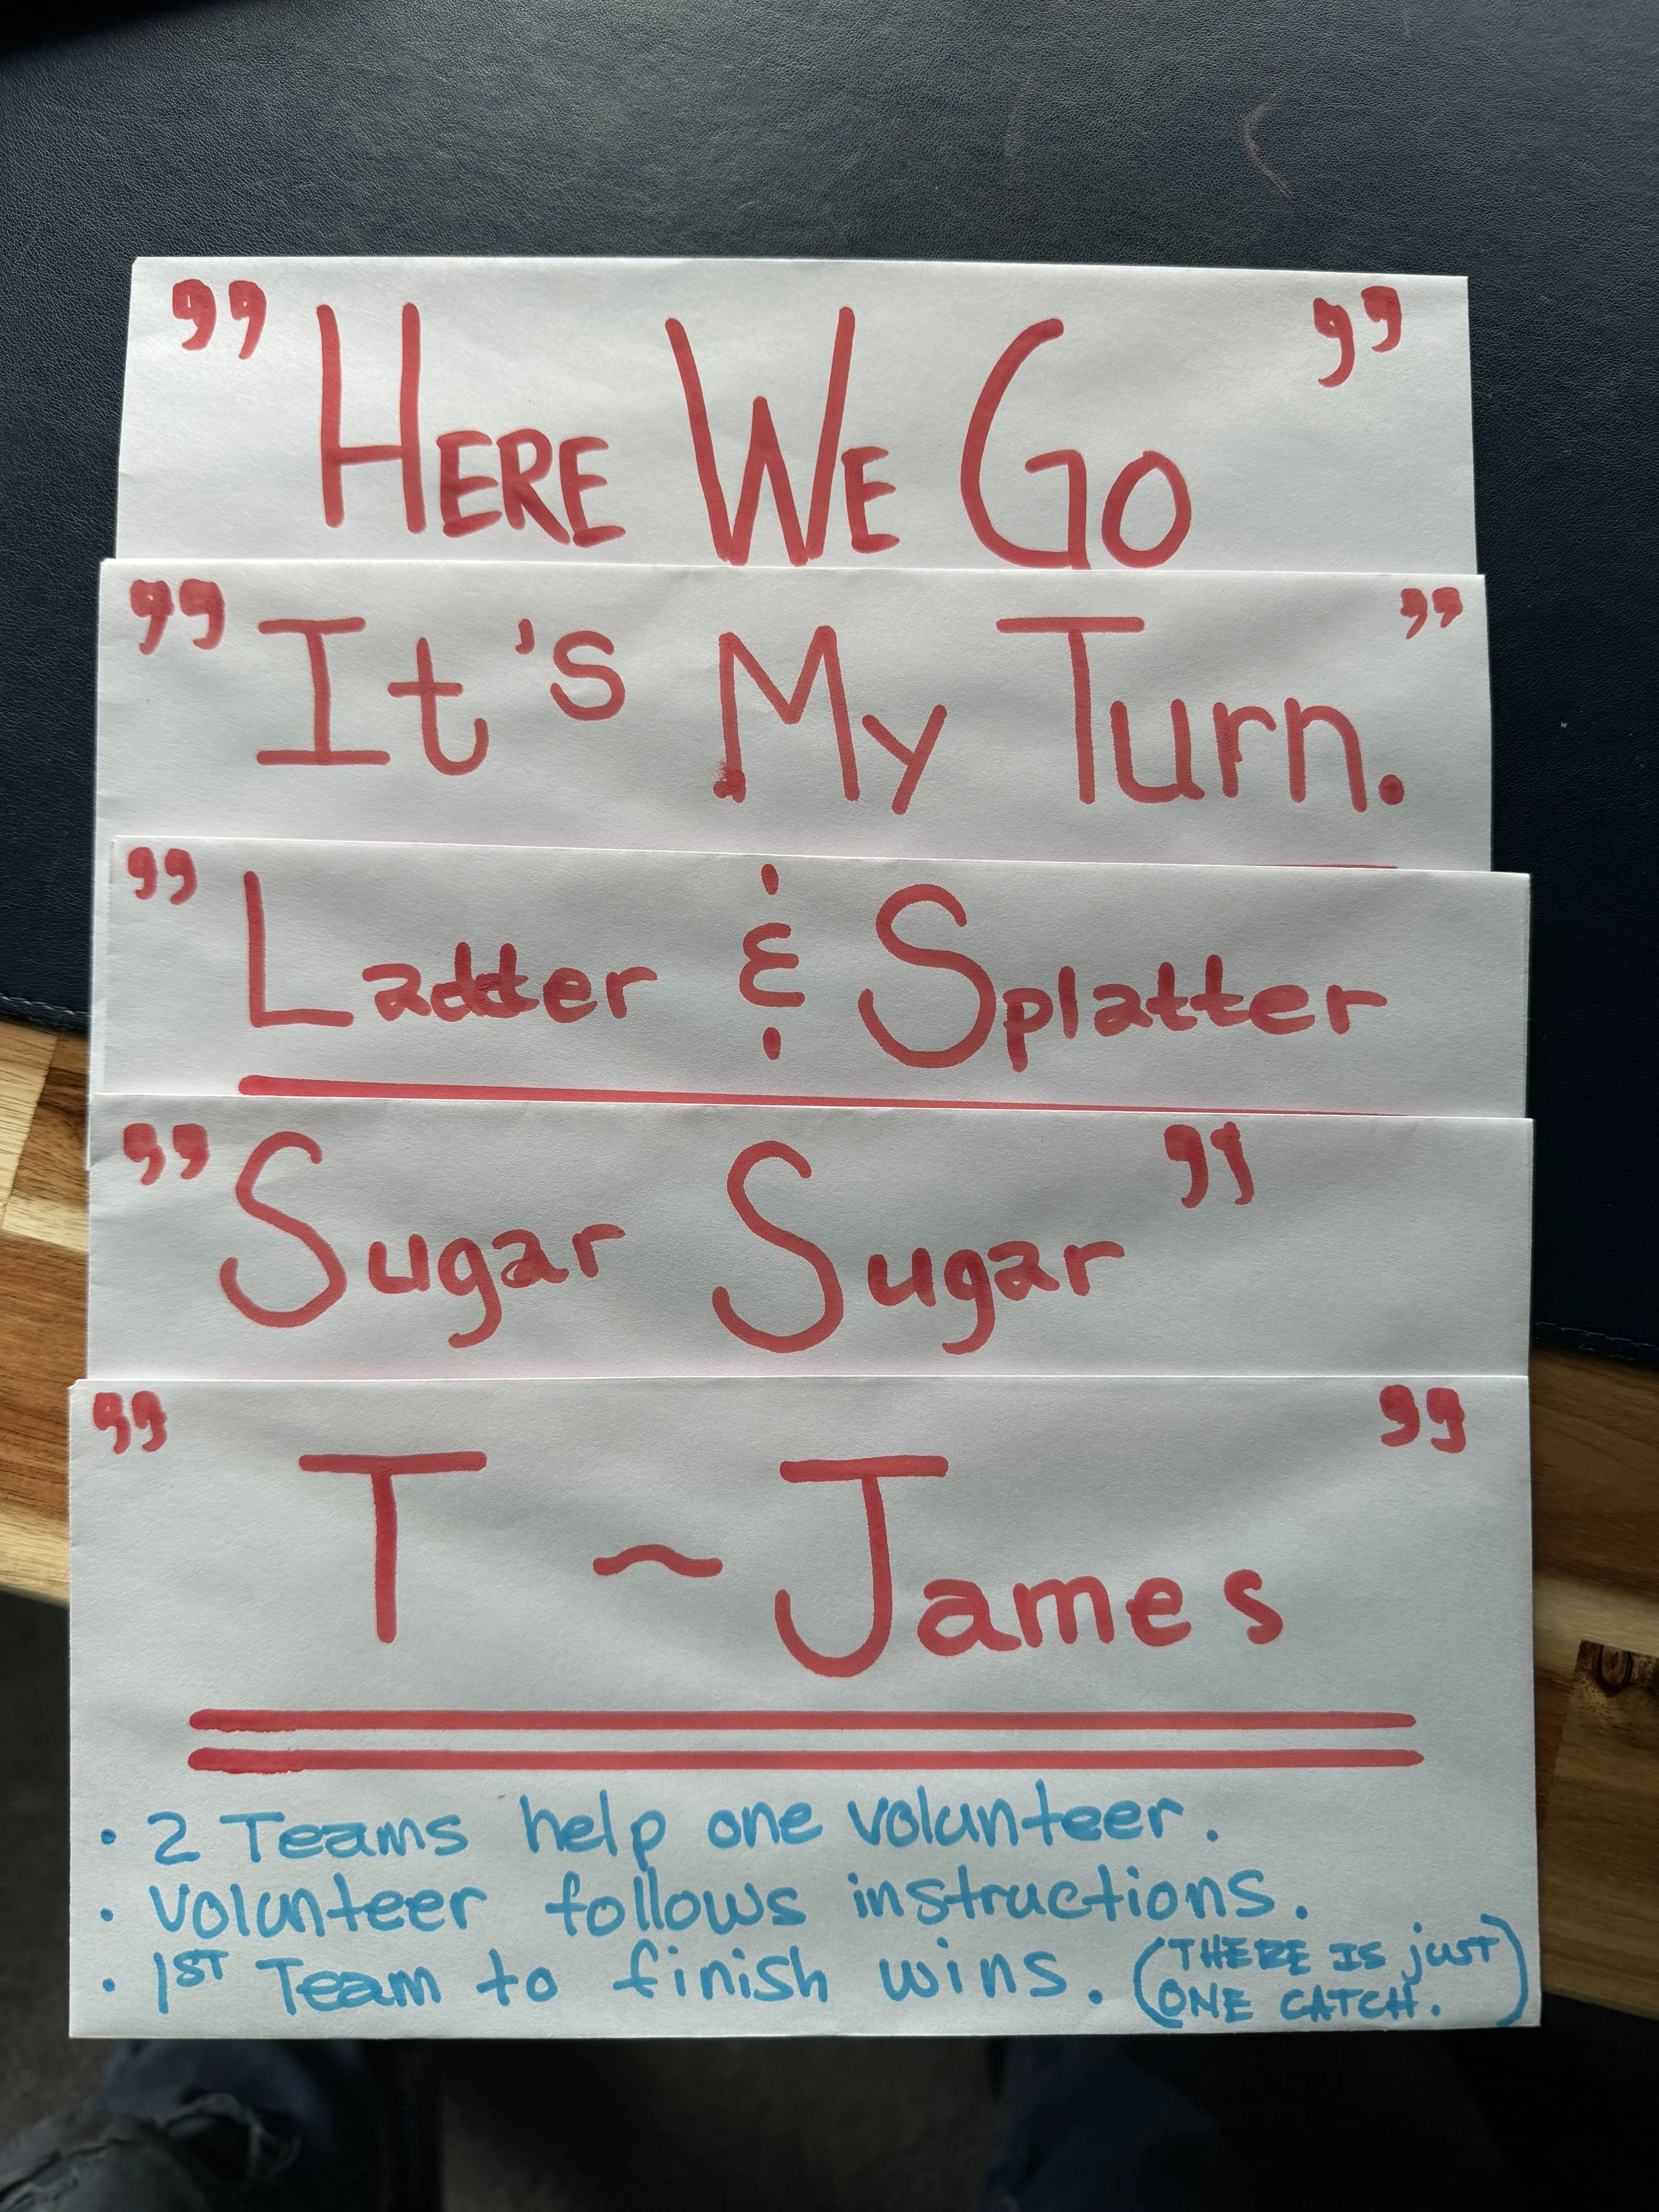 ” HERE WE GO ”
” It's My Turn. ”
” Ladder & Splatter
” Sugar Sugar ”
” T ~ James ”
• 2 Teams help one volunteer.
• Volunteer follows instructions.
• 1ST Team to finish wins. (THERE IS just
ONE CATCH.)